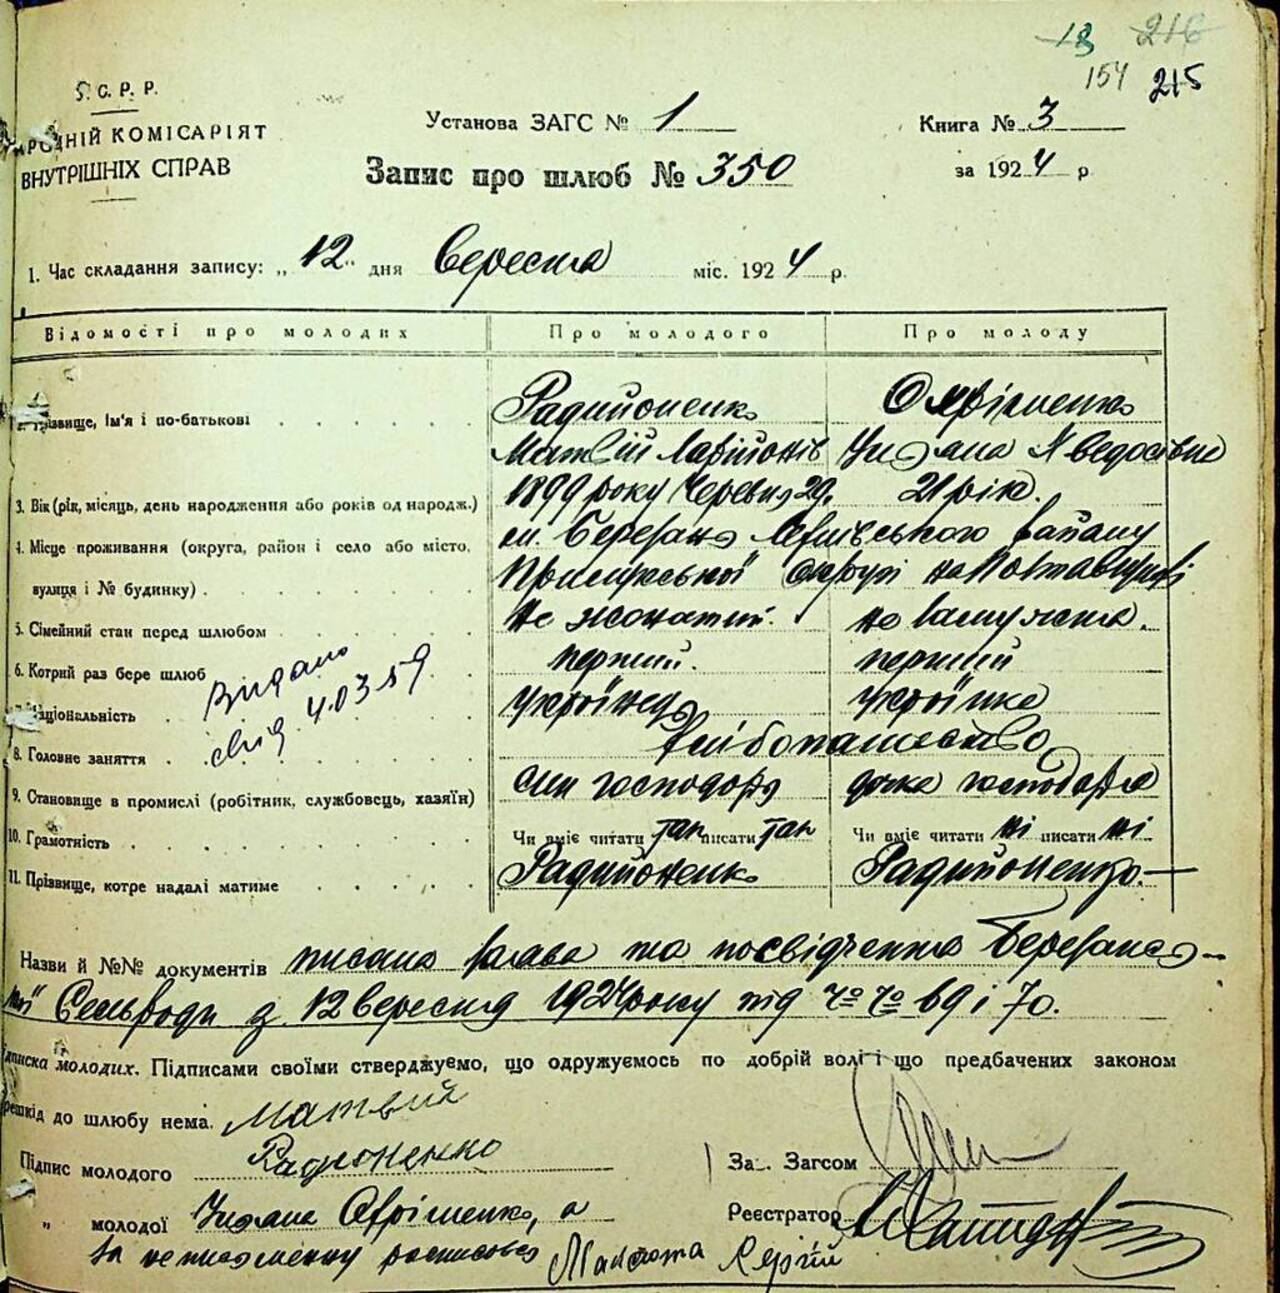 18 216
154 215
Ѕ. С. Р. Р.
НІЙ КОМІСАРІЯТ
ВНУТРІШНІХ СПРАВ
Установа ЗАГС № 1
Книга № 3
Запис про шлюб № 350
за 1924 р
1. Час складання запису: „12" дня Вересня міс. 1924 р.
Відомості про молодих Про молодого Про молоду
Прізвище, Ім'я і по-батькові Радийоненко
Матвій Ларійонів
3. Вік (рік, місяць, день народження або років од народж.) 1899 року Червня 29. 21 рік.
4. Місце проживання (округа, район і село або місто, м. Березань району
вулиця і № будинку) Прилукської Округі на Полтавщині
5. Сімейний стан перед шлюбом Не жонатий. не замужня.
6. Котрий раз бере шлюб перший. перший
Національність Українець Українка
8. Головне заняття Хлібопашество
9. Становище в промислі (робітник, службовець, хазяїн) син господаря дочка господаря
10. Грамотність Чи вміє читати так писати так Чи вміє читати ні писати ні
11. Прізвище, котре надалі матиме Радийоненко Радийоненко.—
Видано
свід. 4.03 59
Назви й №№ документів писана заява та посвідчення Березансь-
кої Сельради з 12 Вересня 1924 року під №№ 69 і 70.
писка молодих. Підписами своїми стверджуємо, що одружуємось по добрій волі і що предбачених законом
решкід до шлюбу нема. Матвій
Підпис молодого Радионенко
За . Загсом
„ молодої Ухяна Охріменко, а
Реєстратор
за неписьменну росписовся Сергій